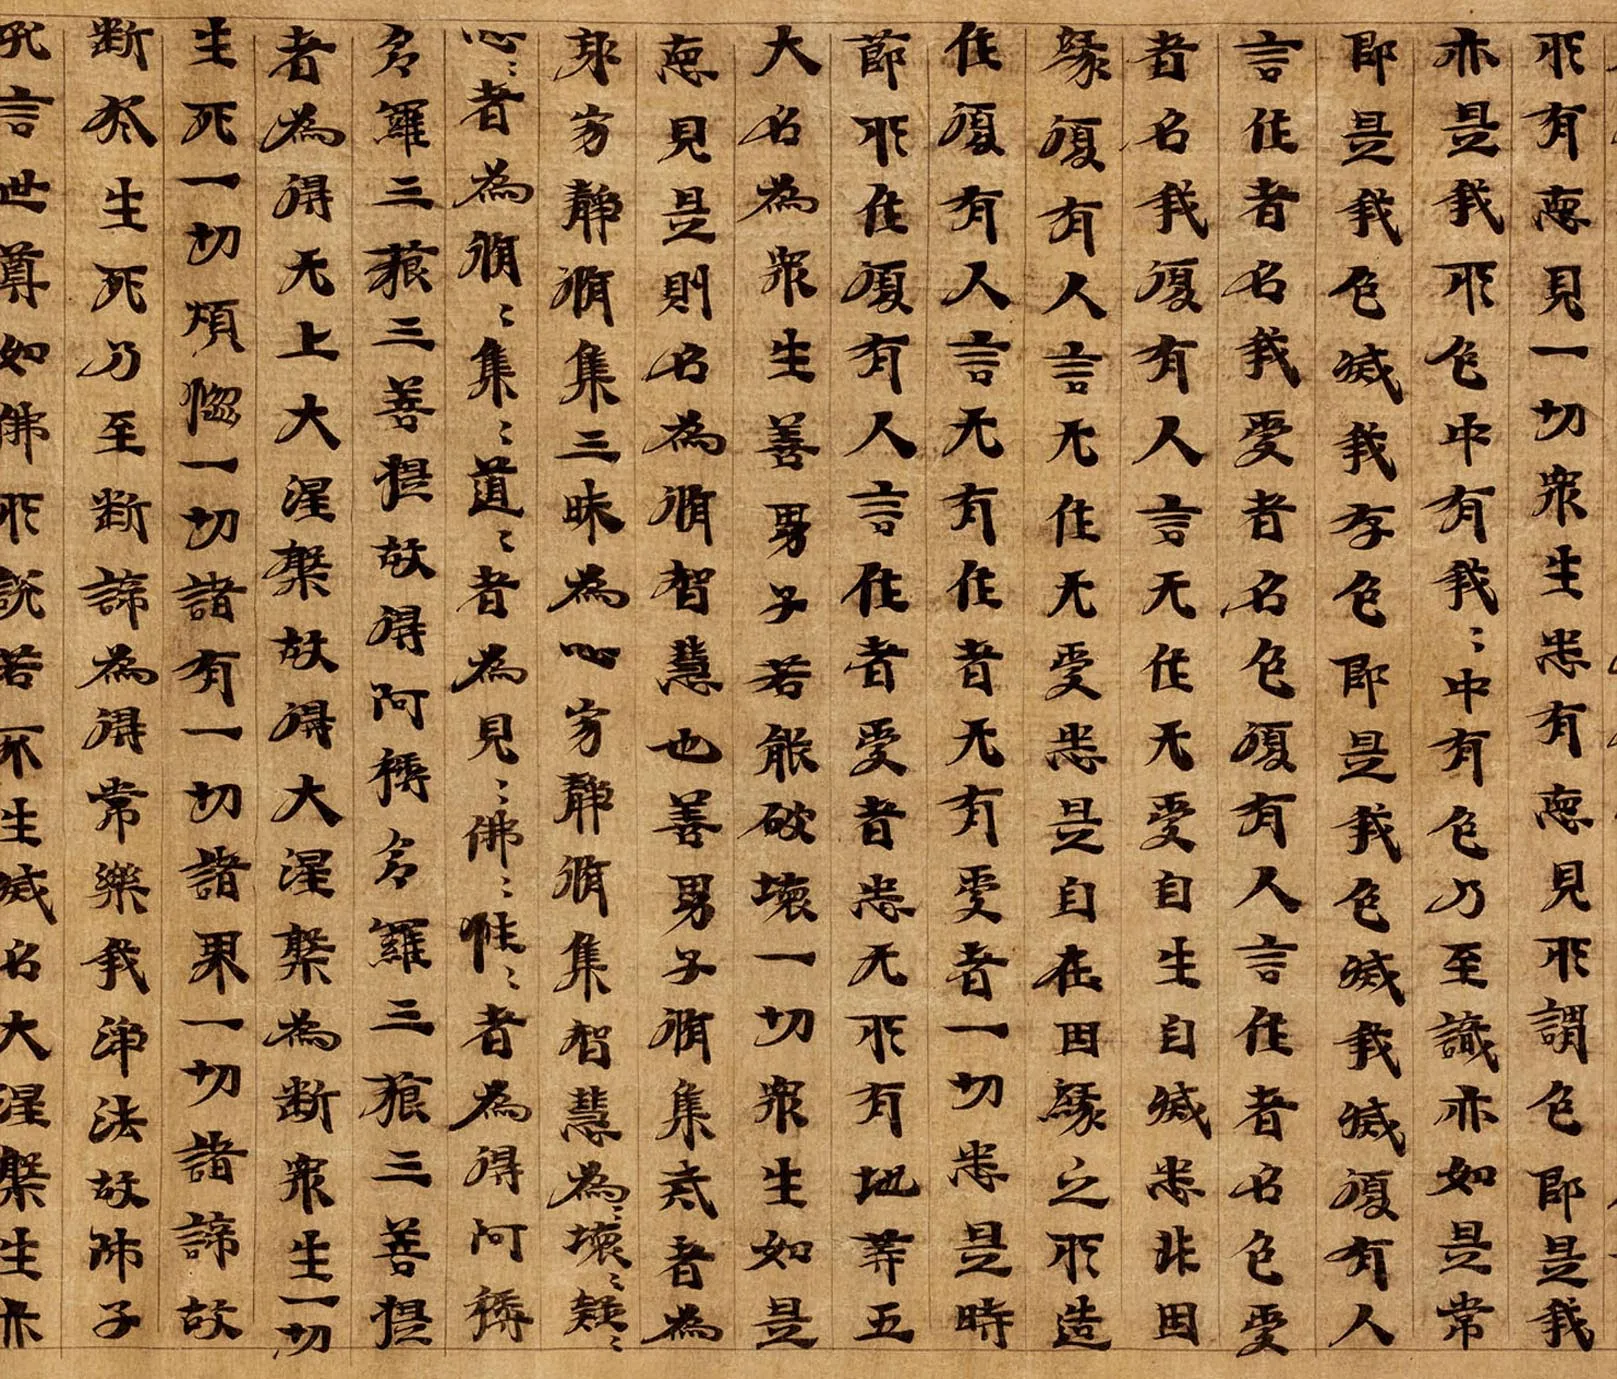 所有惡見一切眾生悉有惡見所謂色即是我
亦是我所色中有我〻中有色乃至識亦如是常
即是我色滅我存色即是我色滅我滅復有人
言作者名我受者名色復有人言作者名色受
者名我復有人言无作无受自生自滅悉非因
緣復有人言无作无受悉是自在因緣之所造
作復有人言无有作者无有受者一切悉是時
節所作復有人言作者受者悉无所有地等五
大名為眾生善男子若能破壞一切眾生如是
惡見是則名為脩智慧也善男子脩集戒者為
身寂靜脩集三昧為心寂靜脩集智慧為〻壞〻疑〻
心〻者為脩〻集〻道〻者為見〻佛〻性〻者為得阿耨
多羅三藐三菩提故得阿耨多羅三藐三菩提
者為得无上大涅槃故得大涅槃為斷眾生一切
生死一切煩惱一切諸有一切諸界一切諸諦故
斷於生死乃至斷諦為得常樂我淨法故師子
吼言世尊如佛所說若不生滅名大涅槃生亦